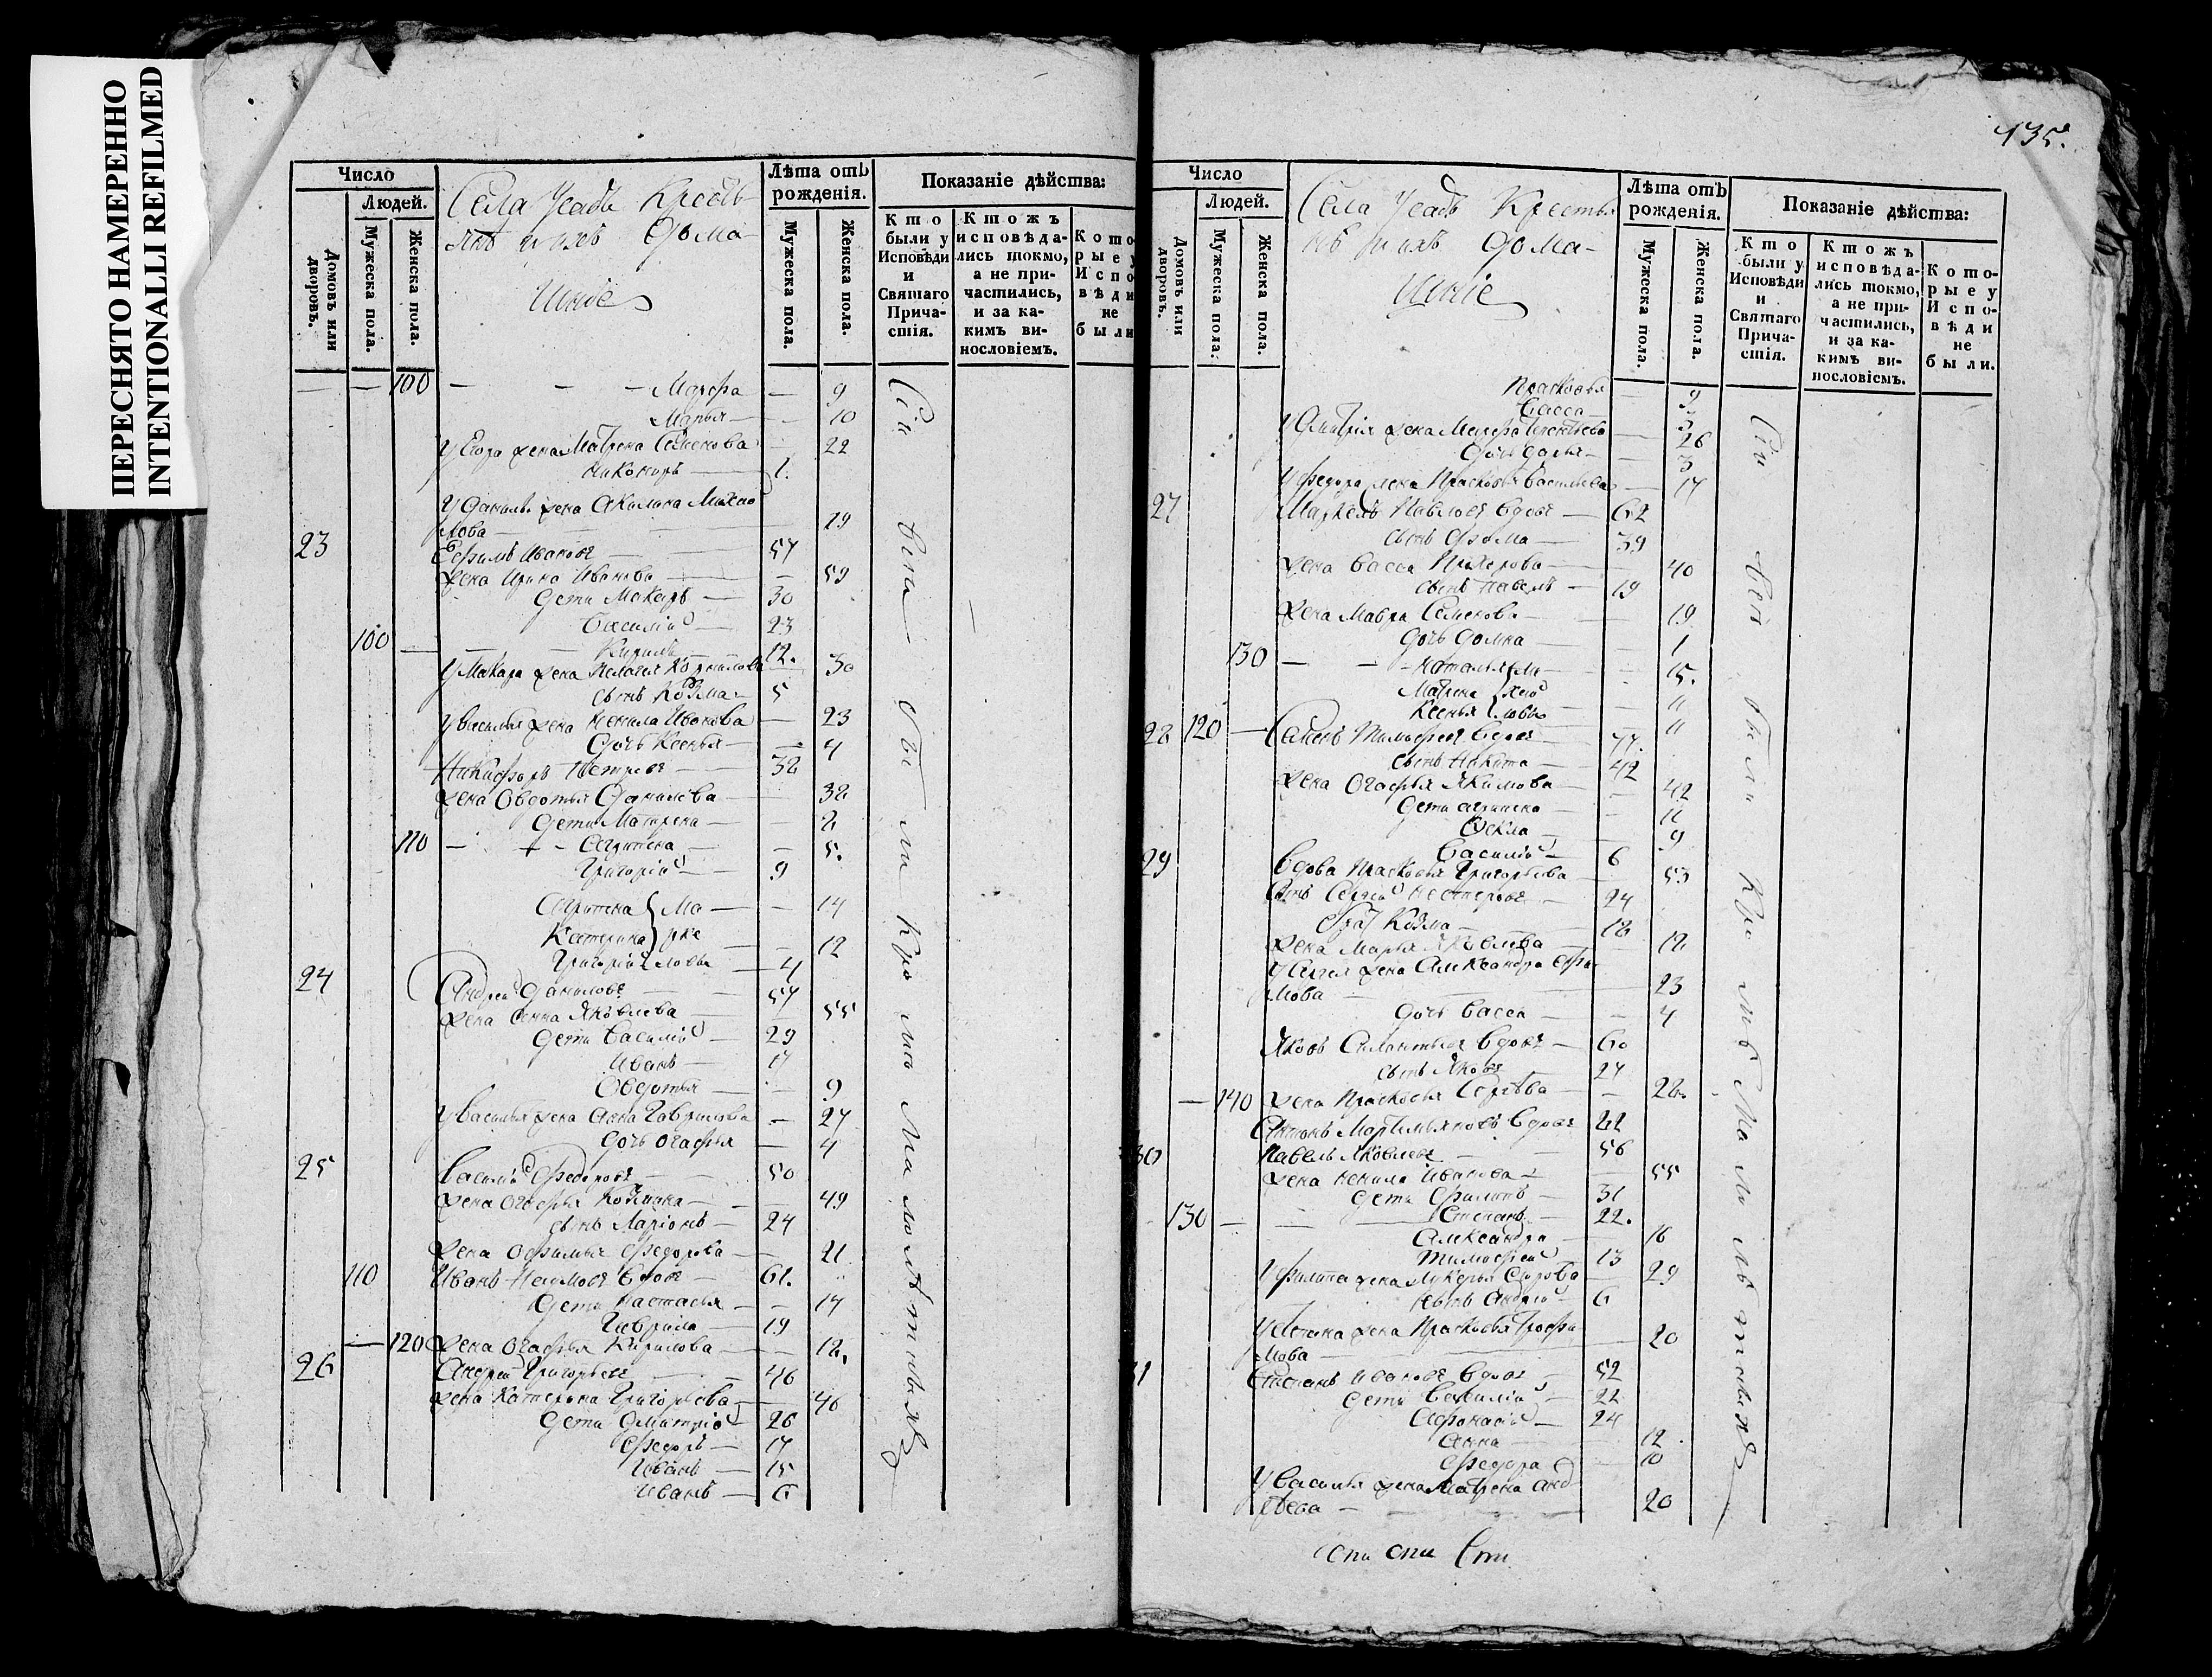 ПЕРЕСНЯТО НАМЕРЕННО
INTENTIONALLI REFILMED
135.
Число
Людей.
Домовъ или дворовъ.
Мужеска пола.
Женска пола.
Села Усадъ Кресть-
янѣ и ихъ Дома-
шніе
Лѣта отъ рожденія.
Мужеска пола.
Женска пола.
Показаніе дѣйства:
Кто были у Исповѣди и Святаго Причастія.
Ктожъ исповѣдались токмо, а не причастились, и за какимъ винословіемъ.
Которые Исповѣди не были
— — 100 — — — Марфа — 9
Марья — — 10
У Егора жена Матрена Семенова 22
Никоноръ — 1.
У Данилы жена Акилина Михаи
лова — — 19
23 Ефимъ Ивановъ — 57
жена Ирина Иванова — — 59
Дети Макаръ — 30
Василій — 23
100 — — — Кирилъ — 12.
У Макара жена Пелагея Корнилова 30
сынъ Козма — 5
У Василья жена Ненила Иванова — 23
Дочь Ксенья — — 4
Никифоръ Петровъ — 38
жена Овдотья Данилова — 38
Дети Матрена —
110 — — Агрипена — — 5.
Григорій — 9
Агрипена } Ма — — 14
Катерина } рке — — 12
Григорій } ловы — 4
24 Андрей Даниловъ — 57
жена Анна Яковлева — — 55
Дети Василій — 29
Иванъ — 17
Овдотья — — 9
У Василья жена Анна Гаврилова — 27
Дочь Огафья — 4
25 Василій Федоровъ — 50
жена Огафья Козмина — — 49
сынъ Ларіонъ — 24
жена Офимья Федорова — 21
110 Иванъ Наумовъ вдовъ — 61.
Дети Настасья — — 17
Гаврила — 19
— 120 жена Огафья Кирилова — — 18.
26 Андрей Григорьевъ — 46
жена Катерина Григорьева — 46
Дети Дмитрій — 26
Федоръ — 17
Иванъ — 15
Иванъ — 6
Сіи вси были кроме малолѣтныхъ
Число
Людей.
Домовъ или дворовъ.
Мужеска пола.
Женска пола.
Села Усадъ Крестья
нѣ и ихъ Дома-
шніе
Лѣта отъ рожденія.
Мужеска пола.
Женска пола.
Показаніе дѣйства:
Кто были у Исповѣди и Святаго Причастія.
Ктожъ исповѣдались токмо, а не причастились, и за какимъ винословіемъ.
Которые Исповѣди не были.
Прасковья — 9
Васса — 3
У Дмитрія жена — 26
Дочь Дарья — 3
У Федора жена Прасковья Васильева — 17
27 Маркелъ Павловъ вдовъ — 62
сынъ Фома — 39
жена Васса Прохорова — 40
сынъ Павелъ — 19
жена Мавра Семенова — 19
Дочь Домна — 1
130 — — Наталья } Ми — 15.
Матрена } хаи — 11
Ксенья } ловы 11
28 120 — Тимофеевъ вдовъ — 77.
сынъ Никита — 42
жена Огафья Якимова — 42
Дети Агрипена — 11
Фекла — 9
Василій — 6
29 Вдова Прасковья Григорьева — 53
Сынъ Сергей Нестеровъ — 24
Братъ Козма — 18
жена Марья Яковлева — 18
У Сергея жена Александра Ефи-
мова — 23
Дочь Васса — 4
Яковъ Силантьевъ вдовъ — 60
сынъ Яковъ — 27
— 140 жена Прасковья Сергѣева — 28.
Антонъ Мартимьяновъ вдовъ 22
30 Павелъ Яковлевъ — 56
жена Ненила Иванова — 55
Дети Филипъ — 31
130 — — Степанъ — 22.
Александра — 16
Тимофей — 13
У Филипа жена Лукерья — 29
сынъ Андрей — 6
У Степана жена Прасковья Трофи-
мова — 20
31 Степанъ Ивановъ вдовъ — 52
Дети Василій — 22
Афонасій — 24
Анна — 12
Федора — 10
У Василья жена Матрена Анд-
рѣева — 20
Сіи вси были кромѣ малолѣтныхъ